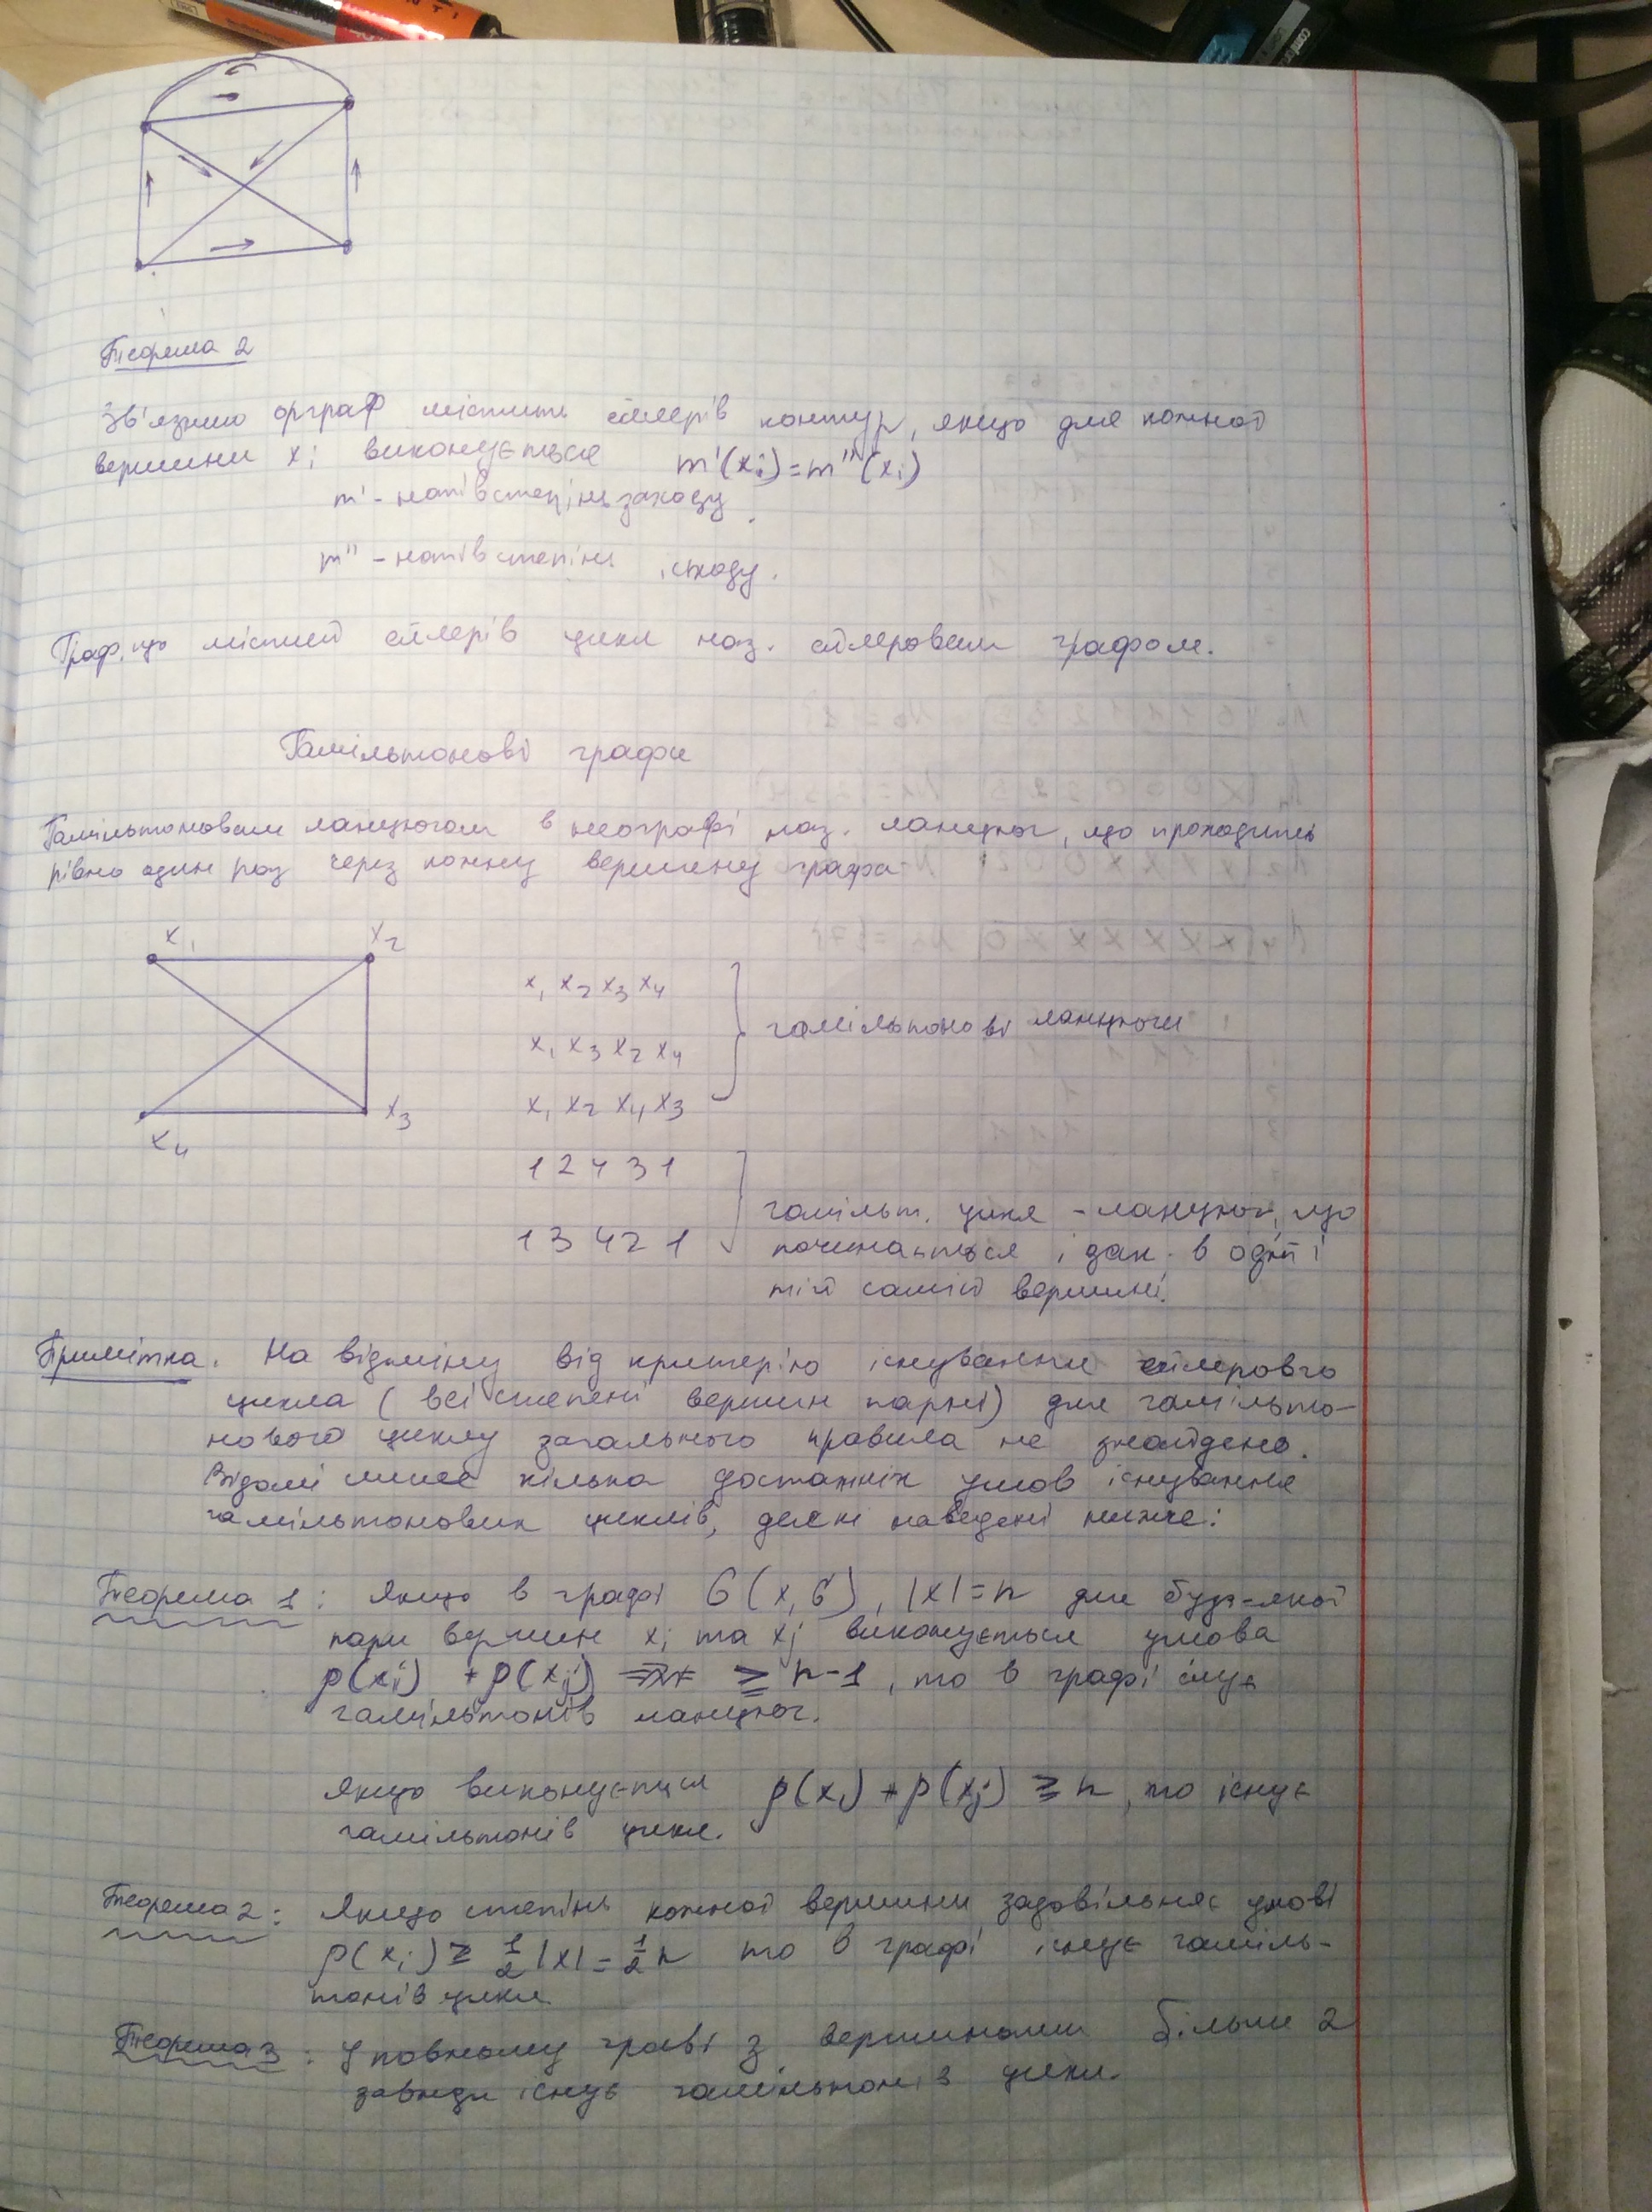 Теорема 2
Зв'язний орграф містить ейлерів контур, якщо для кожної
вершини xi виконується m'(xi)=m''(xi)
m' - напівстепінь заходу
m'' - напівстепінь ісходу.
Граф, що містить ейлерів цикл наз. ейлеровим графом.
Гамільтонові графи
Гамільтоновим ланцюгом в неографі наз. ланцюг, що проходить
рівно один раз через кожну вершину графа
x1 x2
x1 x2 x3 x4
гамільтонові ланцюги
x1 x3 x2 x4
x1 x2 x4 x3
x3
x4
1 2 4 3 1
гамільт. цикл - ланцюг, що
1 3 4 2 1
починається і зак. в одній і
тій самій вершині.
Примітка. На відміну від критерію існування ейлерового
цикла (всі степені вершин парні) для гамільто-
нового циклу загального правила не знайдено.
Відомі лише кілька достатніх умов існування
гамільтонових циклів, деякі наведені нижче:
Теорема 1: Якщо в графі G(x,G), |x|=n для будь-якої
пари вершин xi та xj виконується умова
p(xi) + p(xj) ≥ n-1, то в графі існує
гамільтонів ланцюг.
Якщо виконується p(xi) + p(xj) ≥ n, то існує
гамільтонів цикл.
Теорема 2: Якщо степінь кожної вершини задовільняє умові
p(xi) ≥ 1/2 |x| = 1/2 n то в графі існує гаміль-
тонів цикл
Теорема 3: У повному граві з вершинами більше 2
завжди існує гамільтонів цикл.